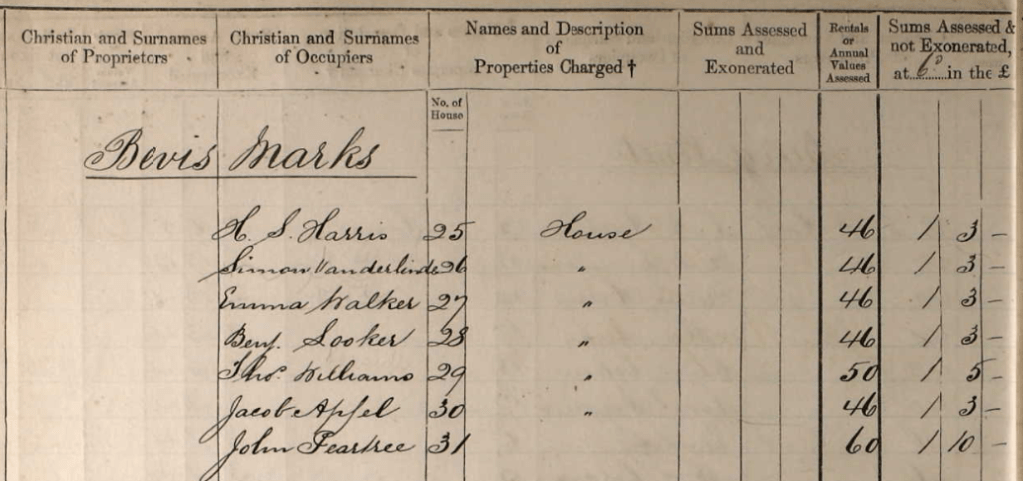 Christian and Surnames of Proprietors Christian and Surnames of Occupiers Names and Description of Properties Charged † Sums Assessed and Exonerated Rentals or Annual Values Assessed Sums Assessed & not Exonerated, at 6ᴰ in the £
No. of House
Bevis Marks
H. S. Harris 25 House 46 1 3 –
Simon Vanderlinde 26 " 46 1 3 –
Emma Walker 27 " 46 1 3 –
Benj. Looker 28 " 46 1 3 –
Thos. Williams 29 " 50 1 5 –
Jacob Apfel 30 " 46 1 3 –
John Peartree 31 60 1 10 –